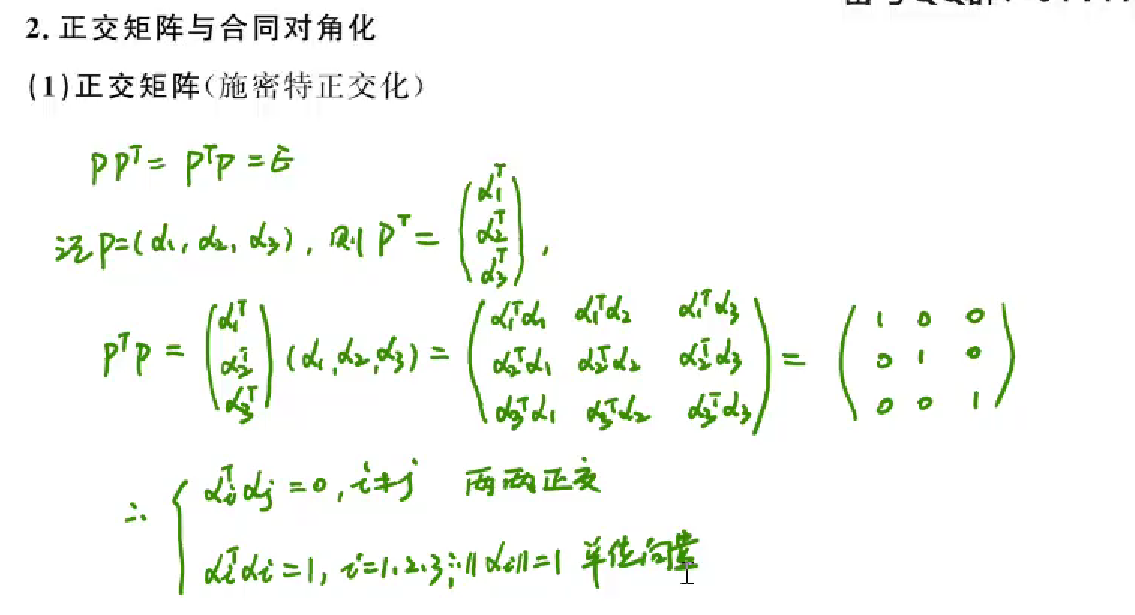 2. 正交矩阵与合同对角化
(1)正交矩阵(施密特正交化)
PPᵀ = PᵀP = E
记P=(α₁, α₂, α₃), 则 Pᵀ = (α₁ᵀ α₂ᵀ α₃ᵀ),
PᵀP = (α₁ᵀ α₂ᵀ α₃ᵀ) (α₁, α₂, α₃) = (α₁ᵀα₁ α₁ᵀα₂ α₁ᵀα₃ α₂ᵀα₁ α₂ᵀα₂ α₂ᵀα₃ α₃ᵀα₁ α₃ᵀα₂ α₃ᵀα₃) = (1 0 0 0 1 0 0 0 1)
∴ { αᵢᵀαⱼ = 0, i≠j 两两正交
αᵢᵀαᵢ = 1, i=1,2,3 ∴ ‖αᵢ‖=1 单位向量